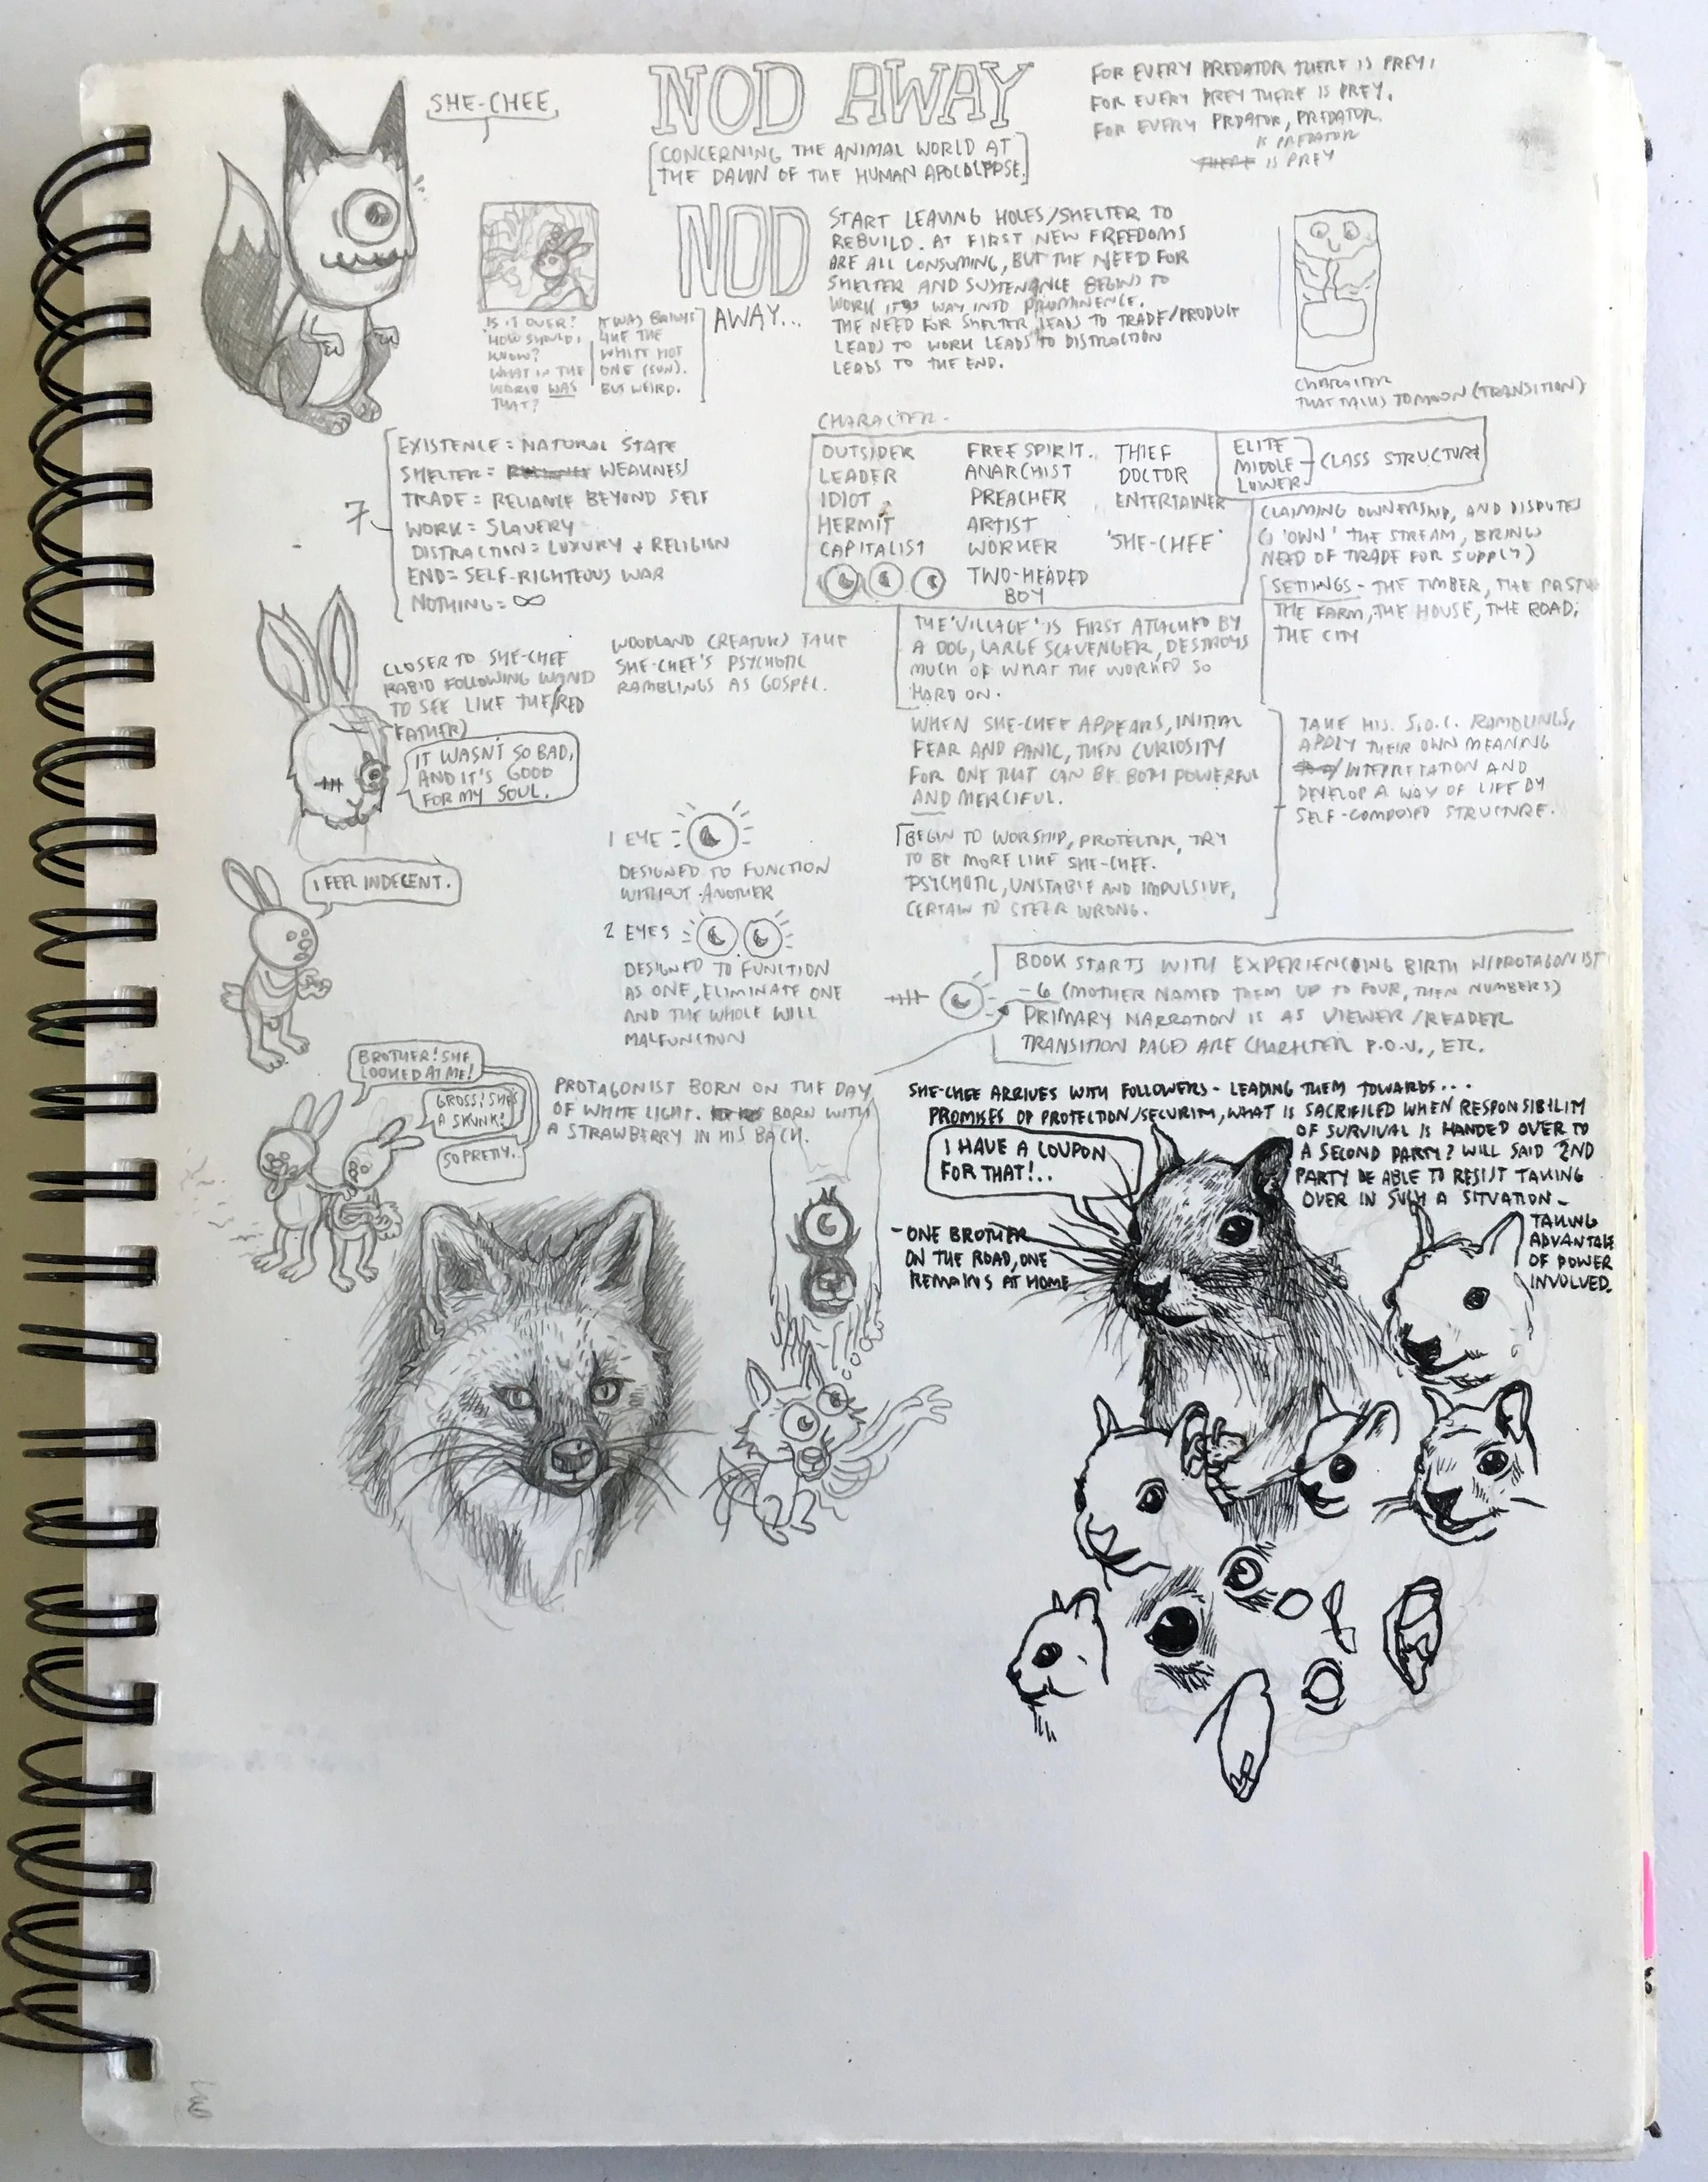 SHE-CHEE.
NOD AWAY
[CONCERNING THE ANIMAL WORLD AT
THE DAWN OF THE HUMAN APOCOLYPSE.]
FOR EVERY PREDATOR THERE IS PREY,
FOR EVERY PREY THERE IS PREY.
FOR EVERY PRDATOR, PREDATOR.
IS PREDATOR
THERE IS PREY
NOD
AWAY...
START LEAVING HOLES/SHELTER TO
REBUILD. AT FIRST NEW FREEDOMS
ARE ALL CONSUMING, BUT THE NEED FOR
SHELTER AND SUSTENANCE BEGINS TO
WORK ITS WAY INTO PROMINENCE.
THE NEED FOR SHELTER LEADS TO TRADE/PRODUCT
LEADS TO WORK LEADS TO DISTRACTION
LEADS TO THE END.
IS IT OVER?
HOW SHOULD I
KNOW?
WHAT IN THE
WORLD WAS
THAT?
IT WAS BRIGHT
LIKE THE
WHITE HOT
ONE (SUN).
BUT WEIRD.
CHARACTER
THAT TALKS TO MOON (TRANSITION)
7
EXISTENCE = NATURAL STATE
SHELTER = WEAKNESS
TRADE = RELIANCE BEYOND SELF
WORK = SLAVERY
DISTRACTION = LUXURY + RELIGION
END = SELF-RIGHTEOUS WAR
NOTHING = ∞
CHARACTER-
OUTSIDER FREE SPIRIT. THIEF
LEADER ANARCHIST DOCTOR
IDIOT PREACHER ENTERTAINER
HERMIT ARTIST
CAPITALIST WORKER 'SHE-CHEE'
TWO-HEADED
BOY
ELITE
MIDDLE
LOWER
CLASS STRUCTURE
CLAIMING OWNERSHIP, AND DISPUTES
'OWN' THE STREAM, BRING
NEED OF TRADE FOR SUPPLY)
SETTINGS - THE TIMBER, THE
THE FARM, THE HOUSE, THE ROAD,
THE CITY
THE 'VILLAGE' IS FIRST ATTACKED BY
A DOG, LARGE SCAVENGER, DESTROYS
MUCH OF WHAT THE WORKED SO
HARD ON.
CLOSER TO SHE-CHEE
RABID FOLLOWING WAND
TO SEE LIKE THE/RED
FATHER)
WOODLAND CREATURS TAKE
SHE-CHEE'S PSYCHOTIC
RAMBLINGS AS GOSPEL.
IT WASN'T SO BAD,
AND IT'S GOOD
FOR MY SOUL.
WHEN SHE-CHEE APPEARS, INITIAL
FEAR AND PANIC, THEN CURIOSITY
FOR ONE THAT CAN BE BOTH POWERFUL
AND MERCIFUL.
BEGIN TO WORSHIP, PROTECTOR, TRY
TO BE MORE LIKE SHE-CHEE.
PSYCHOTIC, UNSTABLE AND IMPULSIVE,
CERTAIN TO STEER WRONG.
TAKE HIS S.O.C. RAMBLINGS,
APPLY THEIR OWN MEANING
/INTEPRETATION AND
DEVELOP A WAY OF LIFE BY
SELF-COMPOSED STRUCTURE.
I FEEL INDECENT.
1 EYE
DESIGNED TO FUNCTION
WITHOUT ANOTHER
2 EYES
DESIGNED TO FUNCTION
AS ONE, ELIMINATE ONE
AND THE WHOLE WILL
MALFUNCTION
BOOK STARTS WITH EXPERIENCING BIRTH W/PROTAGONIST
-6 (MOTHER NAMED THEM UP TO FOUR, THEN NUMBERS)
PRIMARY NARRATION IS AS VIEWER/READER
TRANSITION PAGES ARE CHARACTER P.O.V., ETC.
BROTHER! SHE
LOOKED AT ME!
GROSS! SHE'S
A SKUNK!
SO PRETTY.
PROTAGONIST BORN ON THE DAY
OF WHITE LIGHT. BORN WITH
A STRAWBERRY IN HIS BACK.
SHE-CHEE ARRIVES WITH FOLLOWERS - LEADING THEM TOWARDS...
PROMISES OF PROTECTION/SECURITY, WHAT IS SACRIFICED WHEN RESPONSIBILITY
OF SURVIVAL IS HANDED OVER TO
A SECOND PARTY? WILL SAID 2ND
PARTY BE ABLE TO RESIST TAKING
OVER IN SUCH A SITUATION -
TAKING
ADVANTAGE
OF POWER
INVOLVED.
I HAVE A COUPON
FOR THAT!..
- ONE BROTHER
ON THE ROAD, ONE
REMAINS AT HOME